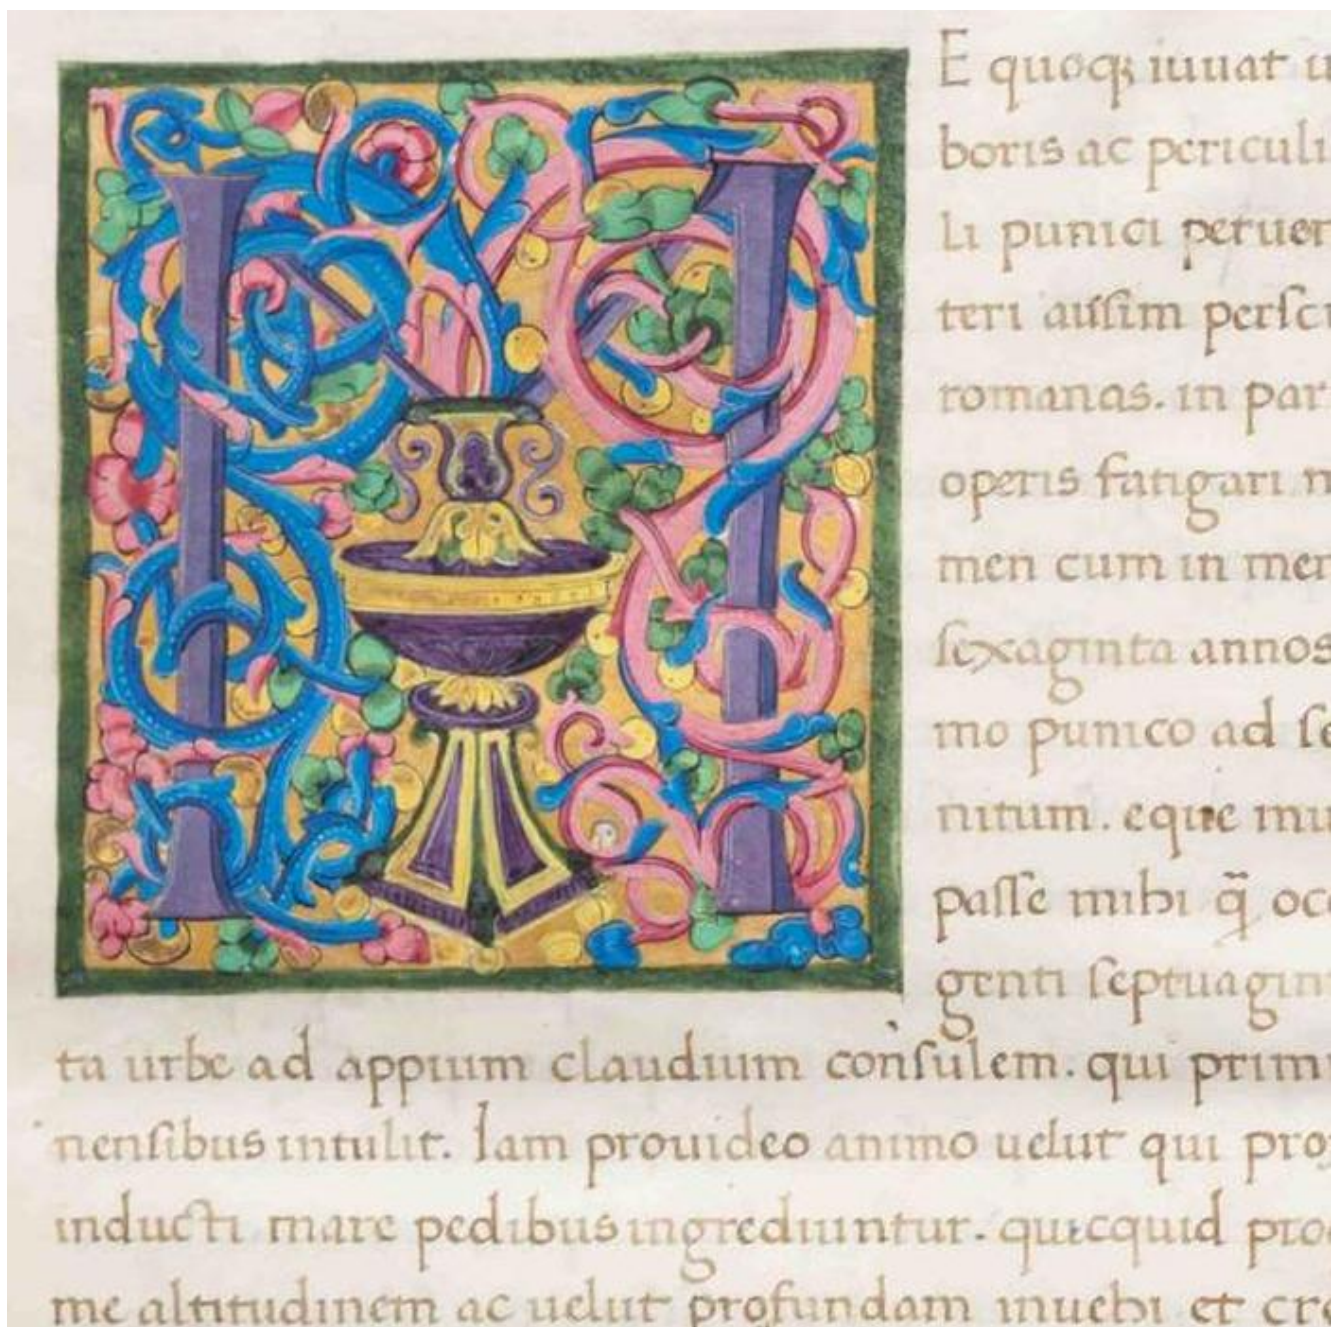 M
E quoq; iuuat u
boris ac periculi
li punici peruen
teri ausim perscr
romanas. in par
operis fatigari n
men cum in men
sexaginta annos
mo punico ad se
nitum. eque mu
passe mihi q̃ occ
genti septuagin
ta urbe ad appium claudium consulem. qui primu
nensibus intulit. Iam prouideo animo uelut qui prox
inducti mare pedibus ingrediuntur. quicquid prog
me altitudinem ac uelut profundam inuehi et cre